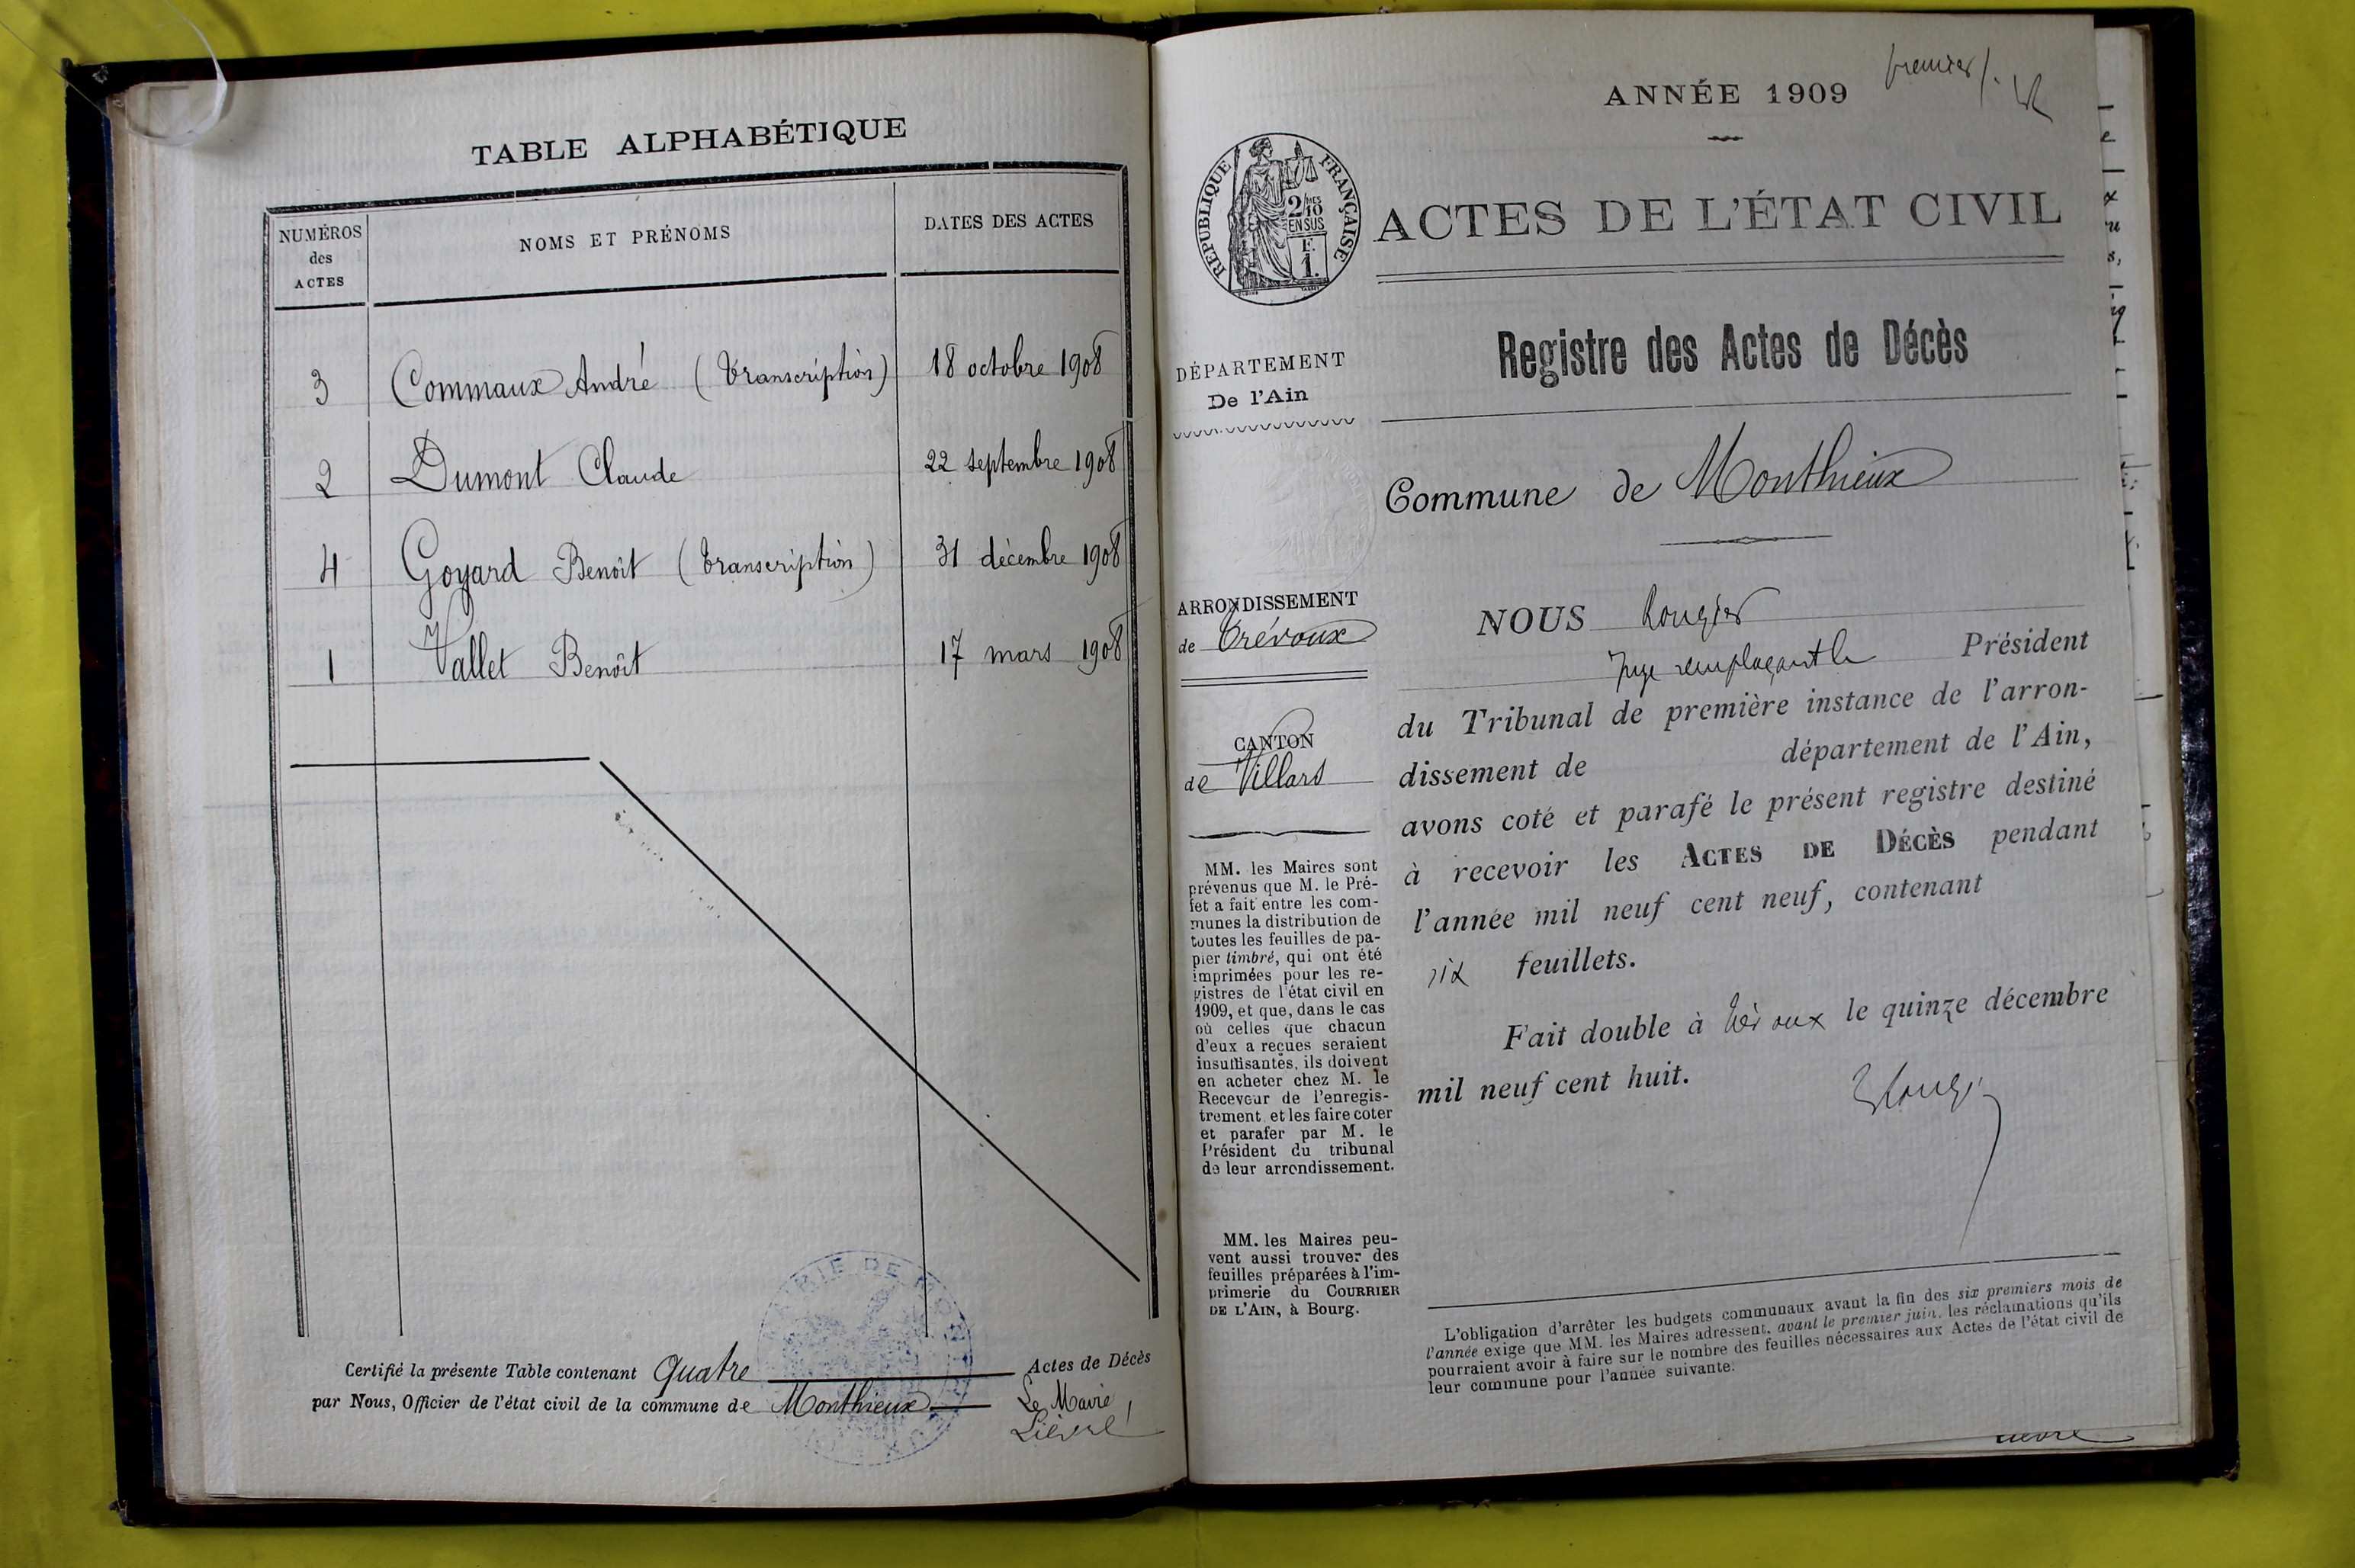 TABLE ALPHABÉTIQUE
NUMÉROS des ACTES
NOMS ET PRÉNOMS
DATES DES ACTES
3 Commaux André (transcription) 18 octobre 1908
2 Dumont Claude 22 septembre 1908
4 Goyard Benoît (transcription) 31 décembre 1908
1 Vallet Benoît 17 mars 1908
MAIRIE DE MO
Certifié la présente Table contenant Quatre Actes de Décès
par Nous, Officier de l'état civil de la commune de Monthieux
Le Maire
Lièvre
premier
ANNÉE 1909
RÉPUBLIQUE FRANÇAISE
2/10
EN SUS
F.
1.
ACTES DE L'ÉTAT CIVIL
Registre des Actes de Décès
DÉPARTEMENT
De l'Ain
Commune de Monthieux
ARRONDISSEMENT
de Trévoux
CANTON
de Villars
MM. les Maires sont
prévenus que M. le Pré-
fet a fait entre les com-
munes la distribution de
toutes les feuilles de pa-
pier timbré, qui ont été
imprimées pour les re-
gistres de l'état civil en
1909, et que, dans le cas
où celles que chacun
d'eux a reçues seraient
insuffisantes, ils doivent
en acheter chez M. le
Receveur de l'enregis-
trement et les faire coter
et parafer par M. le
Président du tribunal
de leur arrondissement.
MM. les Maires peu-
vent aussi trouver des
feuilles préparées à l'im-
primerie du COURRIER
DE L'AIN, à Bourg.
NOUS Rougier
Juge remplaçant le Président
du Tribunal de première instance de l'arron-
dissement de département de l'Ain,
avons coté et parafé le présent registre destiné
à recevoir les ACTES DE DÉCÈS pendant
l'année mil neuf cent neuf, contenant
six feuillets.
Fait double à Trévoux le quinze décembre
mil neuf cent huit.
L'obligation d'arrêter les budgets communaux avant la fin des six premiers mois de
l'année exige que MM. les Maires adressent, avant le premier juin, les réclamations qu'ils
pourraient avoir à faire sur le nombre des feuilles nécessaires aux Actes de l'état civil de
leur commune pour l'année suivante.